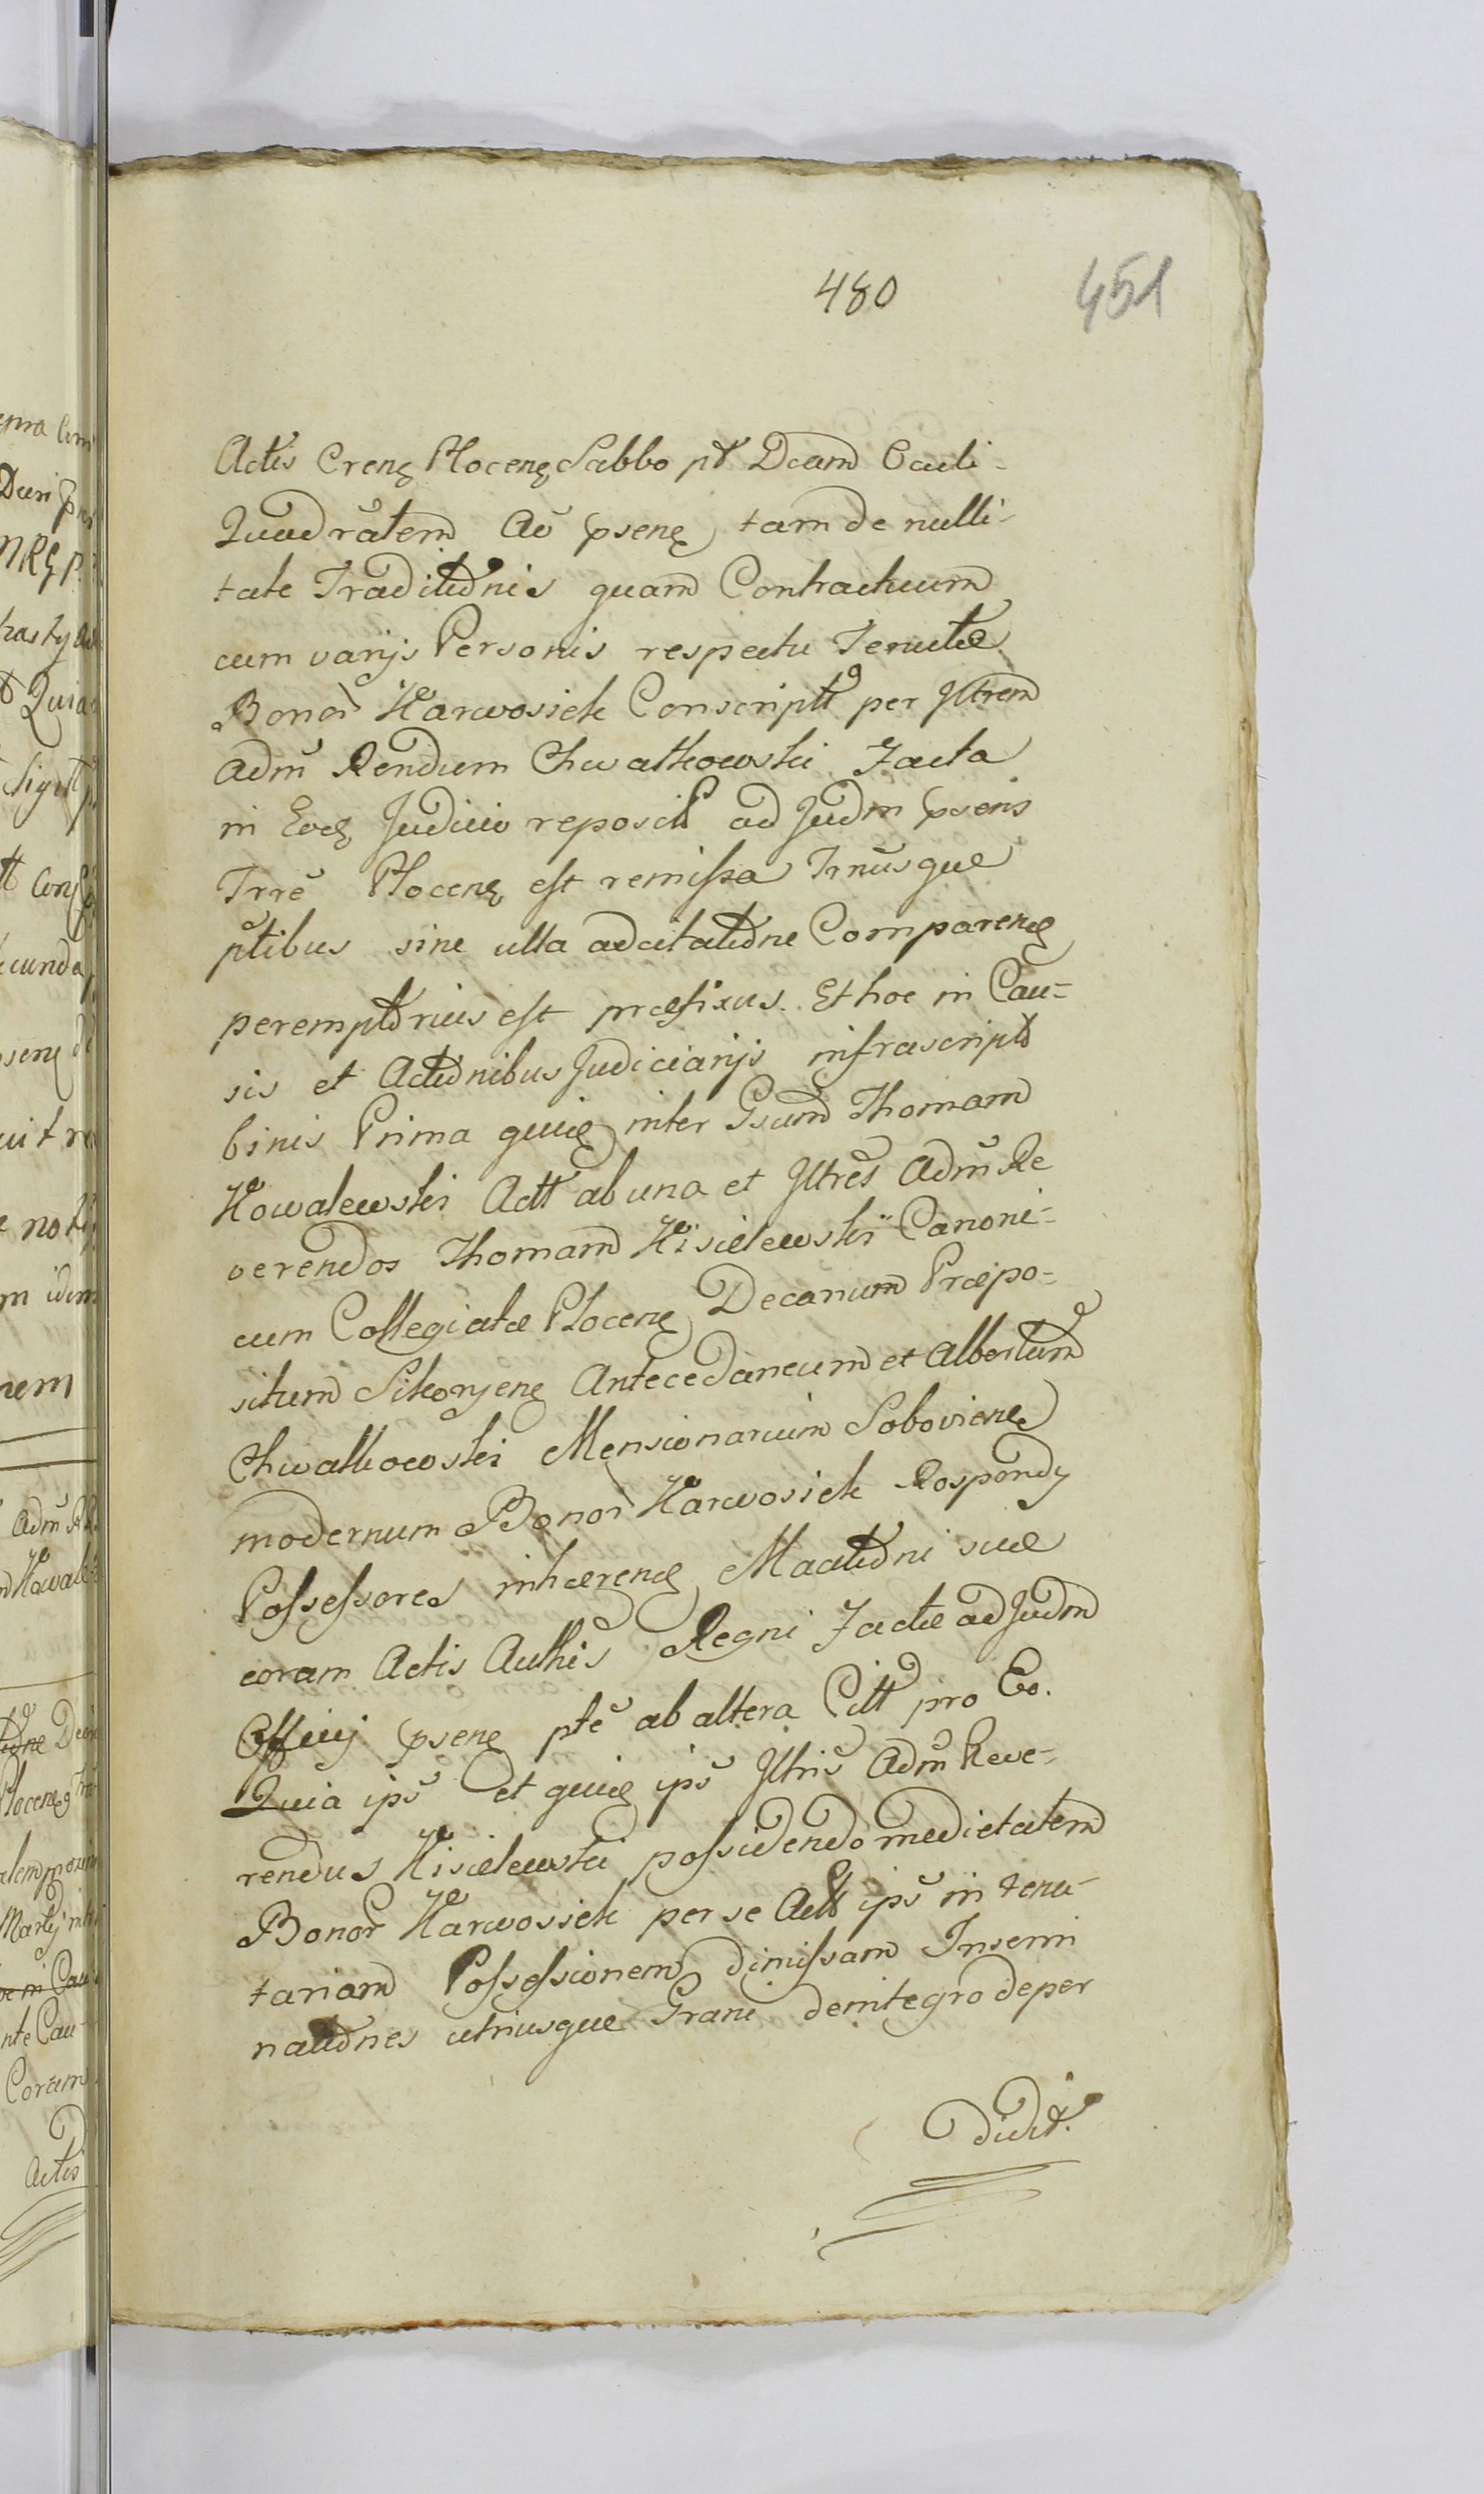 480 451
Actis Crenę Plocenę Sabbo pt Dcam Oculi-
Quadrãtem Aõ psenę tam de nulli-
tate Traditionis quam Contractuum
cum varijs Personis respectu Tenutæ
Bonor Karwosiek Conscriptt per Jltrem
adm̃ Rendum Chwatkowski Facta
in Eodę Judicio reposit ad Judm psens
Trrẽ Plocenę est remissa Trnũsque
ptibus sine ulla adcitatione Comparendę
peremptorius est præfixus. Et hoc in Cau-
sis et Actionibus Judiciarijs infrascript
binis Prima quidę inter Gsum Thomam
Kowalewski Actt ab una et Jltrẽs Adm̃ Re
verendos Thomam Kisielewski Canoni-
cum Collegiatæ Plocenę Decanum Præpo-
situm Sikorjenę Antecedaneum et Albertum
Chwatkowski Mensionarium Sobovienę
modernum Bonor Karwosiek Rospondy
Possessores inhærendę Maãtioni suæ
coram Actis Authis Regni Factæ ad Judm
Officij psenę ptẽ ab altera Citt pro Eo.
Quia ips̃ et quidę ips̃ Jltris̃ Adm̃ Reve-
rendus Kisielewski possidendo medietatem
Bonor Karwosiek per se Actt ips̃ in tenu-
tariam Possessionem dimissam Insemi
nationes utriusque Grani deintegro deper
didit.
epra Com
Quia
secunda
not
idem
nem
Adm̃
Kowal
Plocenę
nte Cau-
Coram
Actis